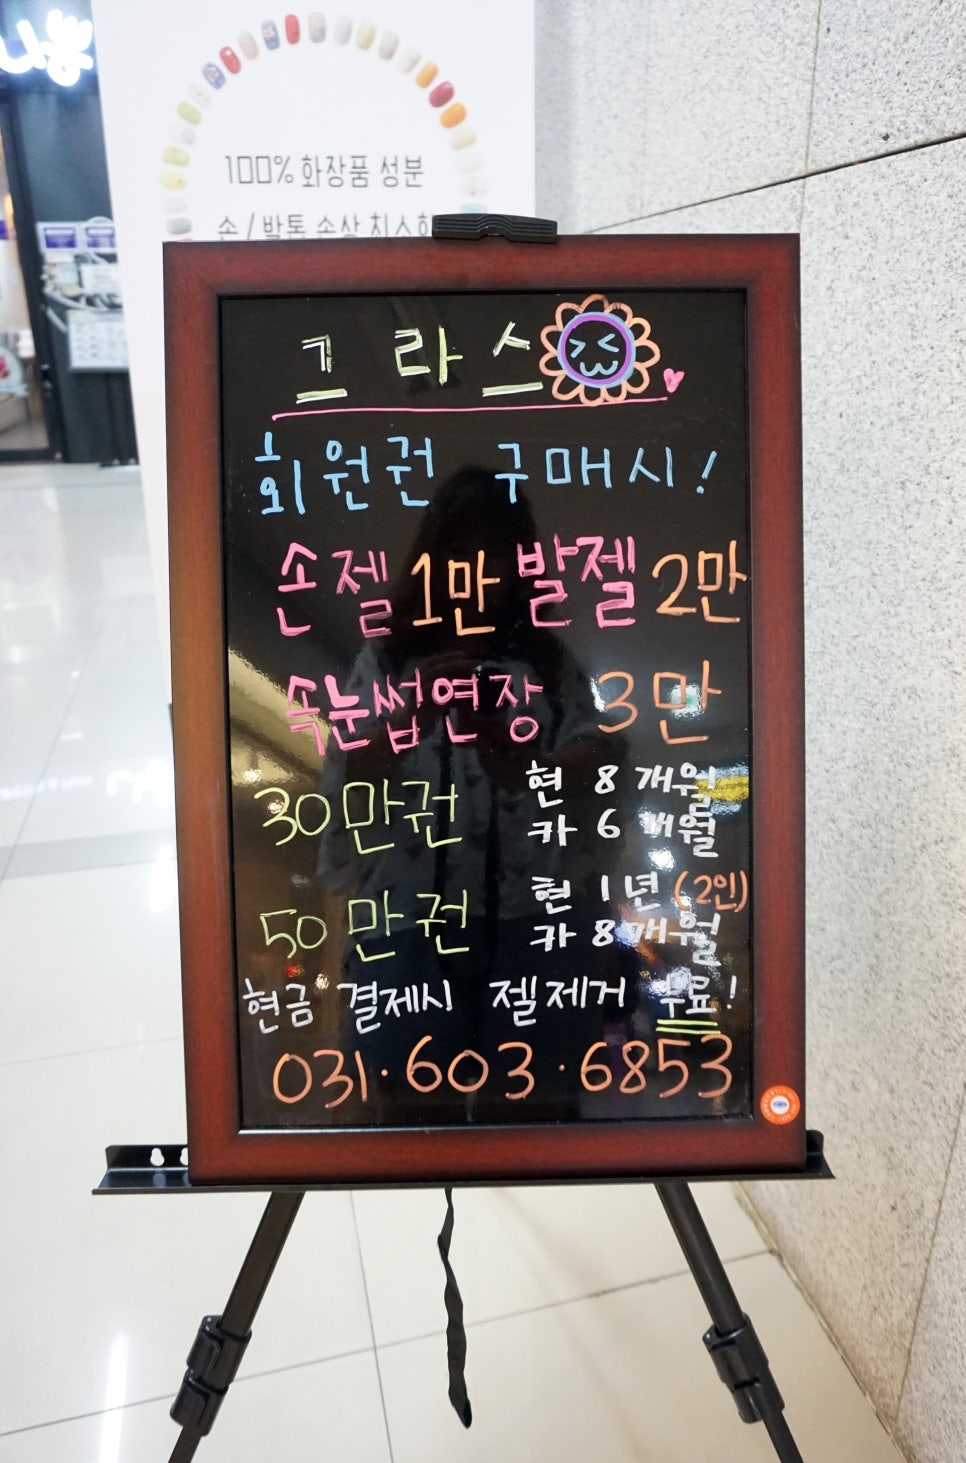 100% 화장품 성분
그라스
회원권 구매시!
손젤 1만 발젤 2만
속눈썹연장 3만
30만권 현 8개월
카 6개월
50만권 현 1년 (2인)
카 8개월
현금 결제시! 젤제거 무료!
031·603·6853